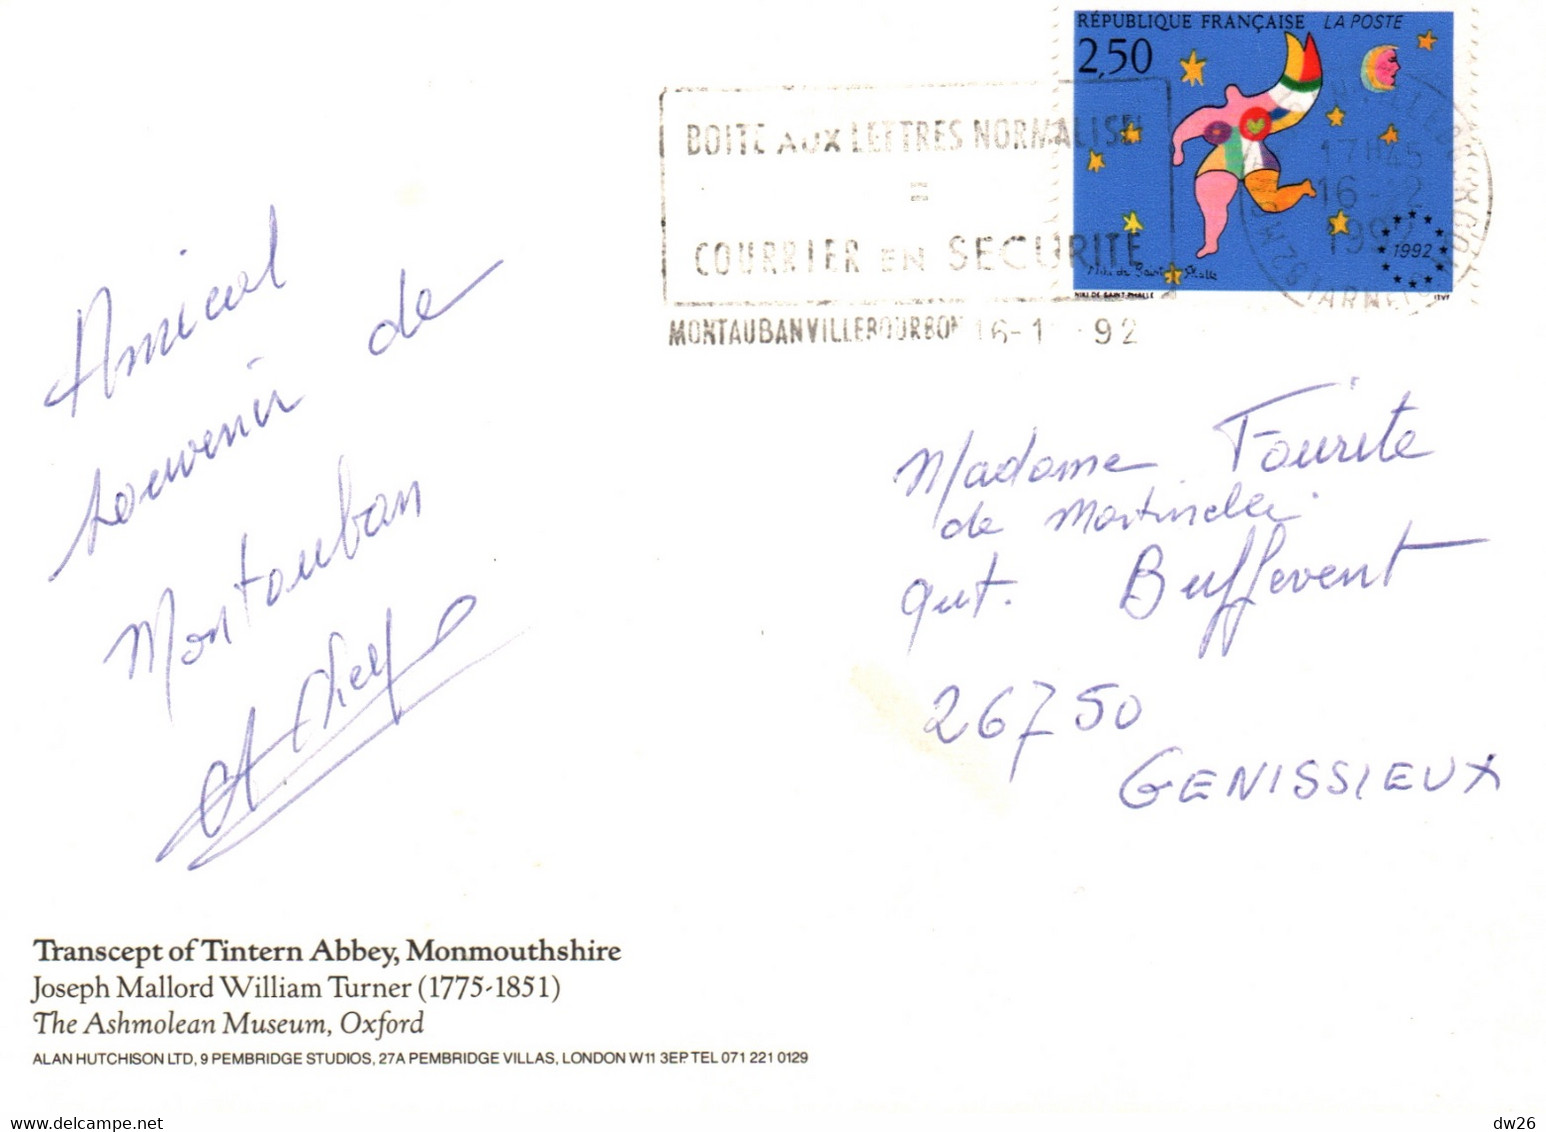 RÉPUBLIQUE FRANÇAISE LA POSTE
2,50
BOITE AUX LETTRES NORMALISE
=
COURRIER EN SECURITE
MONTAUBANVILLEBOURBON 16-1 92
17H45
16-12
1992
1992
Niki de Saint Phalle
NIKI DE SAINT-PHALLE
ITVF
Amical
souvenir de
Montauban
Madame
de Martinelli
qut. Buffevent
26750
GENISSIEUX
Transcept of Tintern Abbey, Monmouthshire
Joseph Mallord William Turner (1775-1851)
The Ashmolean Museum, Oxford
ALAN HUTCHISON LTD, 9 PEMBRIDGE STUDIOS, 27A PEMBRIDGE VILLAS, LONDON W11 3EP TEL 071 221 0129
www.delcampe.net
dw26